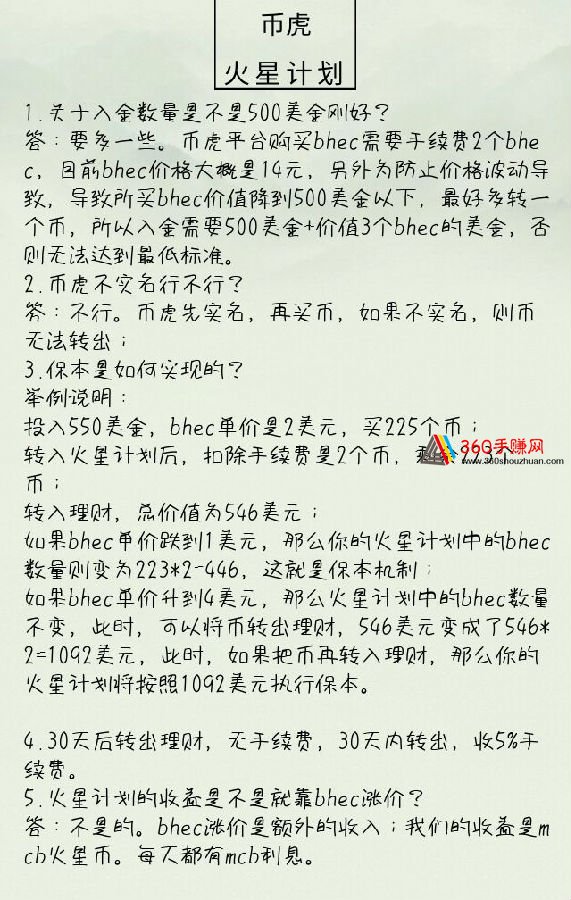 币虎
火星计划
1.关于入金数量是不是500美金刚好？
答：要多一些。币虎平台购买bhec需要手续费2个bhe
c，目前bhec价格大概是14元，另外为防止价格波动导
致，导致所买bhec价值降到500美金以下，最好多转一
个币，所以入金需要500美金+价值3个bhec的美金，否
则无法达到最低标准。
2.币虎不实名行不行？
答：不行。币虎先实名，再买币，如果不实名，则币
无法转出；
3.保本是如何实现的？
举例说明：
投入550美金，bhec单价是2美元，买225个币；
转入火星计划后，扣除手续费是2个币，剩余223个
币；
360手赚网
www.360shouzhuan.com
转入理财，总价值为546美元；
如果bhec单价跌到1美元，那么你的火星计划中的bhec
数量则变为223*2-446，这就是保本机制；
如果bhec单价升到4美元，那么火星计划中的bhec数量
不变，此时，可以将币转出理财，546美元变成了546*
2=1092美元，此时，如果把币再转入理财，那么你的
火星计划将按照1092美元执行保本。
4.30天后转出理财，无手续费，30天内转出，收5%手
续费。
5.火星计划的收益是不是就靠bhec涨价？
答：不是的。bhec涨价是额外的收入；我们的收益是m
cb火星币。每天都有mcb利息。